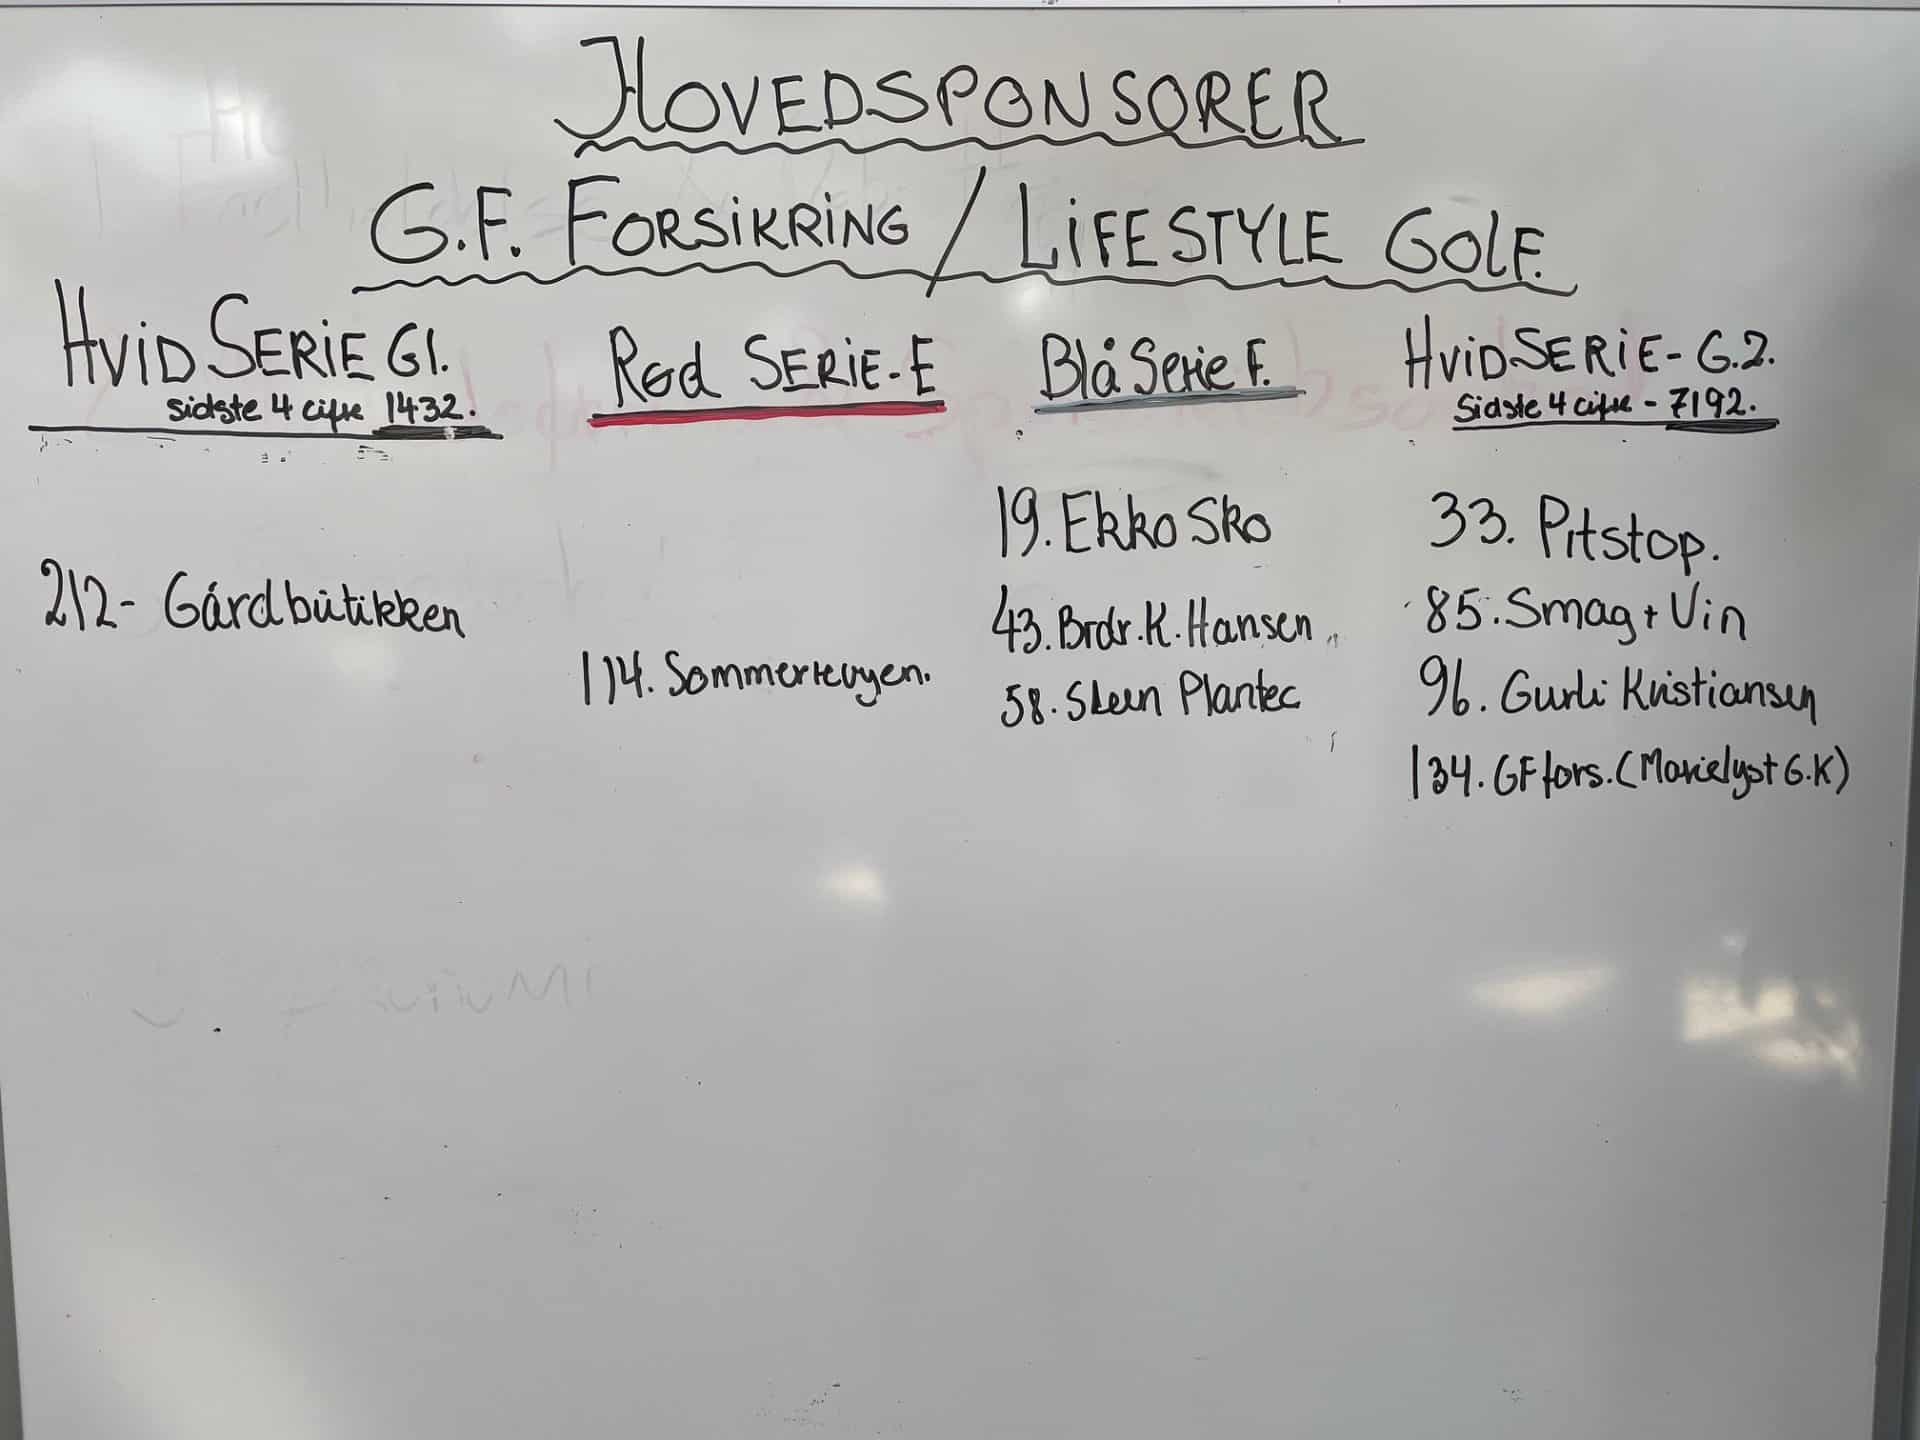 HOVEDSPONSORER
G.F. FORSiKRiNG / LiFESTYLE GOLF.
HViD SERiE G1.
sidste 4 cifre 1432.
212- Gårdbutikken
Rød SERiE-E
114. Sommerrevyen.
Blå Serie F.
19. Ekko Sko
43. Brdr. K. Hansen
58. Steen Plantec
HViD SERiE- G.2.
Sidste 4 cifre - 7192.
33. Pitstop.
85. Smag + Vin
96. Gurli Kristiansen
134. GF fors. (Marielyst G.K)